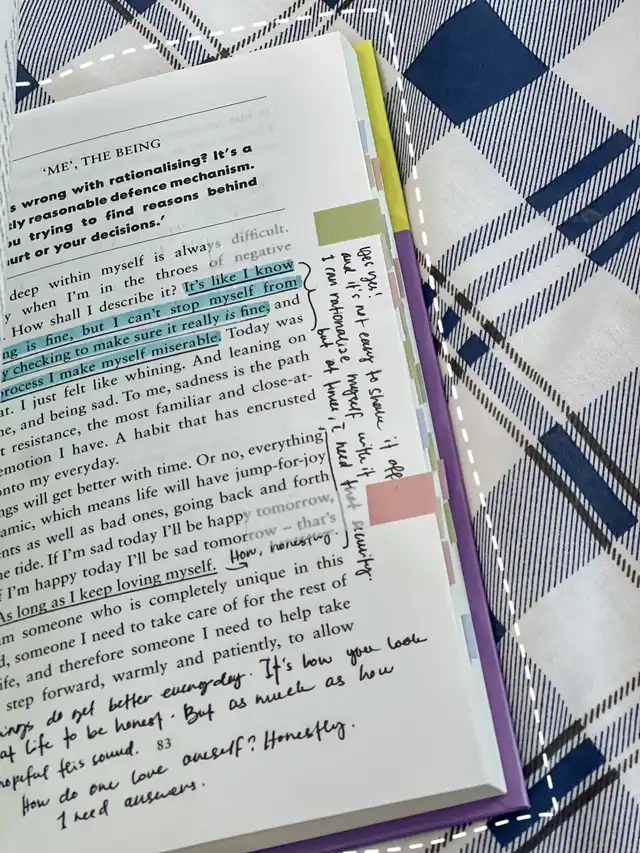 'ME', THE BEING
s wrong with rationalising? It's a
ly reasonable defence mechanism.
ou trying to find reasons behind
urt or your decisions.'
deep within myself is always difficult.
y when I'm in the throes of negative
How shall I describe it? It's like I know
ng is fine, but I can't stop myself from
y checking to make sure it really is fine, and
process I make myself miserable. Today was
at. I just felt like whining. And leaning on
ne, and being sad. To me, sadness is the path
t resistance, the most familiar and close-at-
emotion I have. A habit that has encrusted
onto my everyday.
ngs will get better with time. Or no, everything
amic, which means life will have jump-for-joy
nts as well as bad ones, going back and forth
he tide. If I'm sad today I'll be happy tomorrow,
f I'm happy today I'll be sad tomorrow – that's
As long as I keep loving myself. How, honestly.
m someone who is completely unique in this
d, someone I need to take care of for the rest of
ife, and therefore someone I need to help take
step forward, warmly and patiently, to allow
83
yes yes!
and it's not easy to shake it off
I can rationalize myself with it
but at times, I need that security.
ings do get better everyday. It's how you look
at life to be honest. But as much as how
hopeful this sound.
How do one love oneself? Honestly.
I need answers.